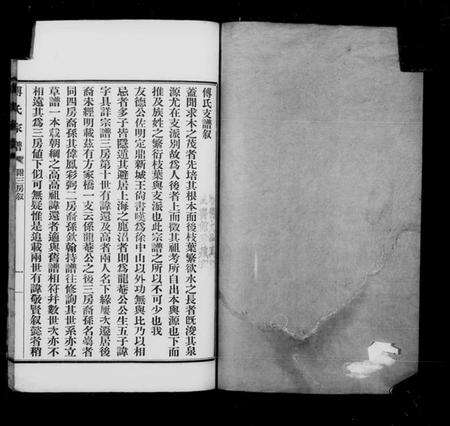 傅氏支譜叙
蓋聞求木之茂者先培其根本而後枝葉繁欲水之長者旣浚其泉
源尤在支派別故爲人後者上而徵其祖考所自出本與源也下而
推及族姓之繁衍枝葉與支派也此宗譜之所以不可少也我
友德公佐明定鼎新城王尙書嘆爲徐中山以外功無與比乃以相
忌者多子皆隱遁其避居上海之鹿沼者則爲龍菴公公生五子諱
字具詳宗譜三房第十世有諱還及高者兩人名下緣屢次遷居後
裔未經明載茲有方家橋一支云係龍菴公之後三房裔孫名嵩者
同四房裔孫其偉鳳彩弼二房裔孫欽翰持譜往修詢其世系亦立
草譜一本爲朝綱之高高祖諱還者適與舊譜相符幷數世次亦不
相遠其爲三房値下似可無疑惟是追載兩世有諱敬賢叙懿者稍
傅氏宗譜 附三房叙